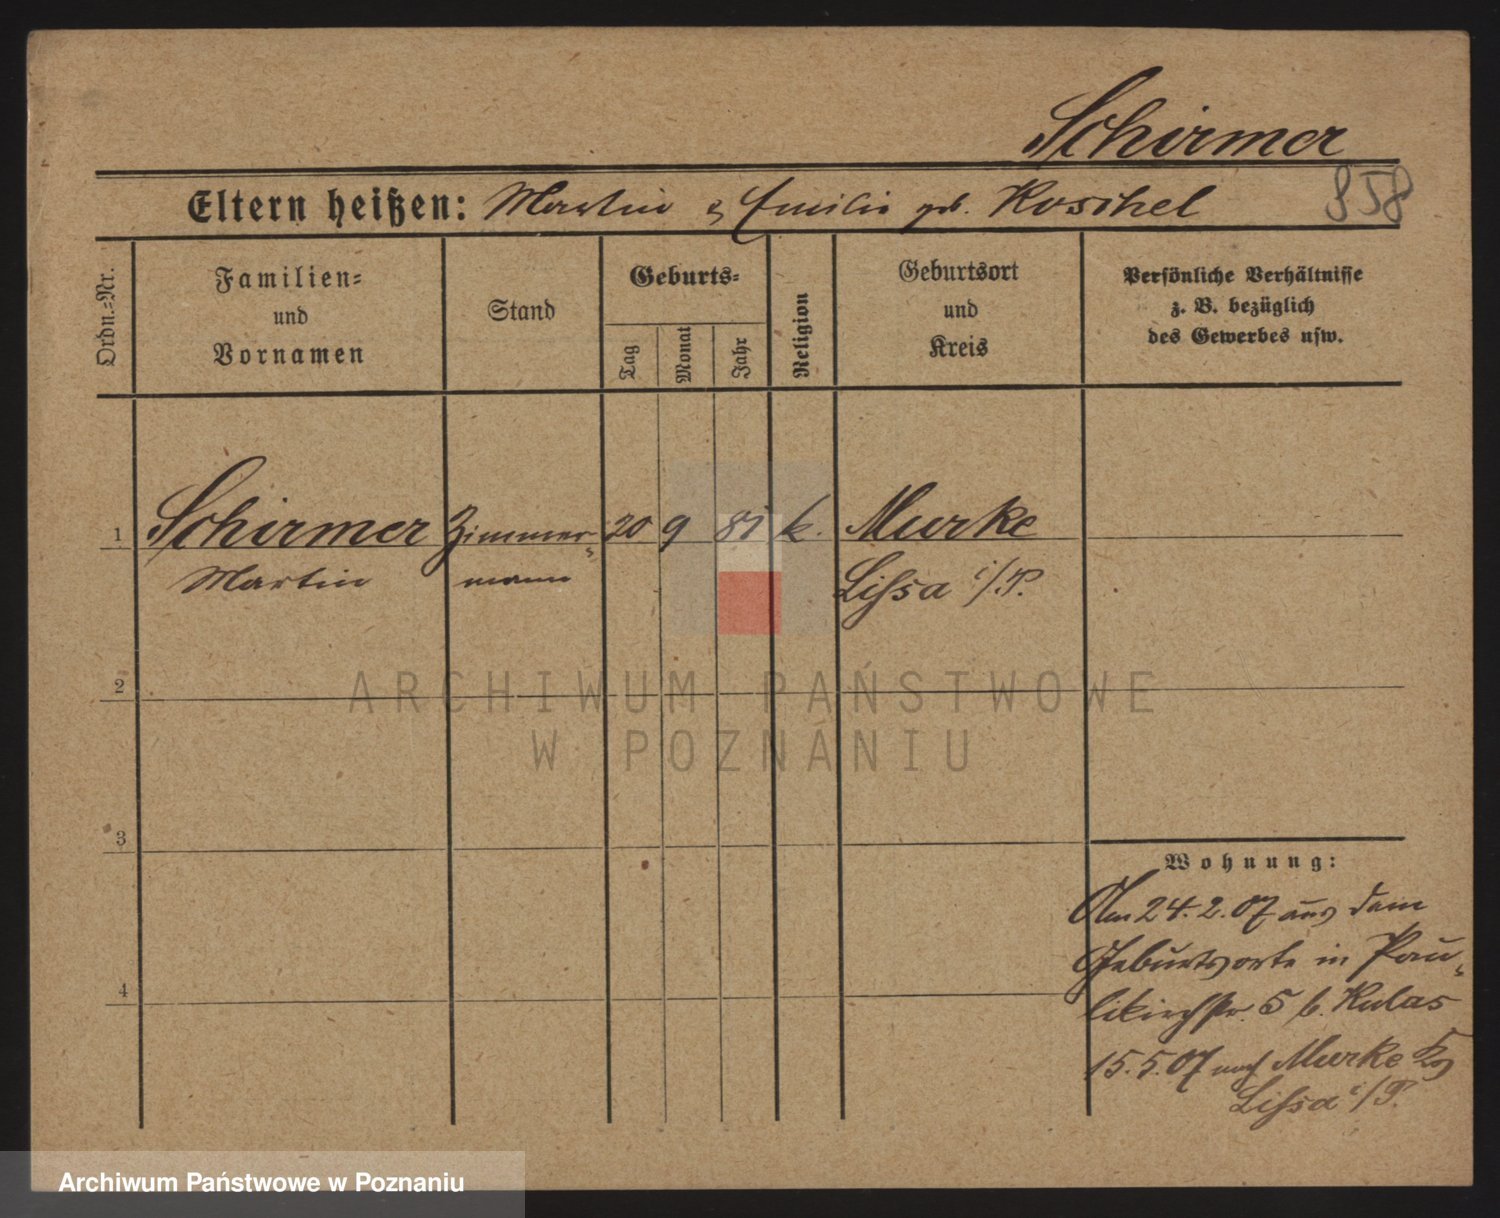 Schirmer
Eltern heißen: Martin & Emilie geb. Koschel
858
Ordn.=Nr.
Familien=
und
Vornamen
Stand
Geburts=
Tag
Monat
Jahr
Religion
Geburtsort
und
Kreis
Persönliche Verhältnisse
z. B. bezüglich
des Gewerbes usw.
1 Schirmer Zimmer= 20 9 81 k. Murke
Martin mann Lissa i/P.
2
3
4
Wohnung:
Am 24.2.07 aus dem
Geburtsorte in Pau=
likirchstr. 5 b. Kulas
15.5.07 nach Murke Krs
Lissa i/P.
ARCHIWUM PAŃSTWOWE
W POZNANIU
Archiwum Państwowe w Poznaniu